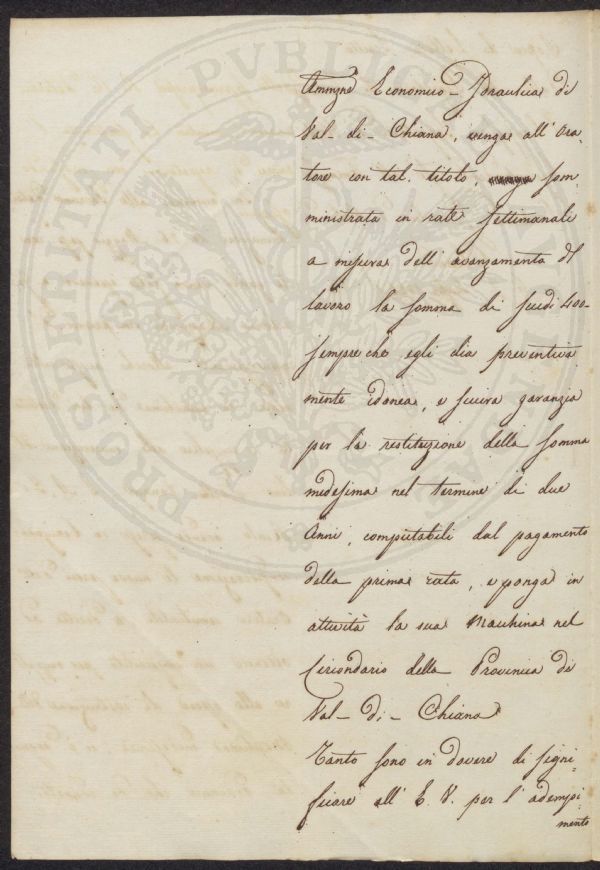 Ammne Economico-Idraulica di
Val-di-Chiana, venga all'Ora-
tore con tal. titolo, som
ministrata in rate settimanali
a misura dell'avanzamento del
lavoro la somma di scudi 400-
sempre che egli dia preventiva
mente idonea, e sicura garanzia
per la restituzione della somma
medesima nel termine di due
Anni, computabili dal pagamento
della prima rata, e ponga in
attività la sua Macchina nel
Circondario della Provincia di
Val-di-Chiana
Tanto sono in dovere di signi-
ficare all'E. V. per l'adempi-
mento
PROSPERITATI PUBLICAE